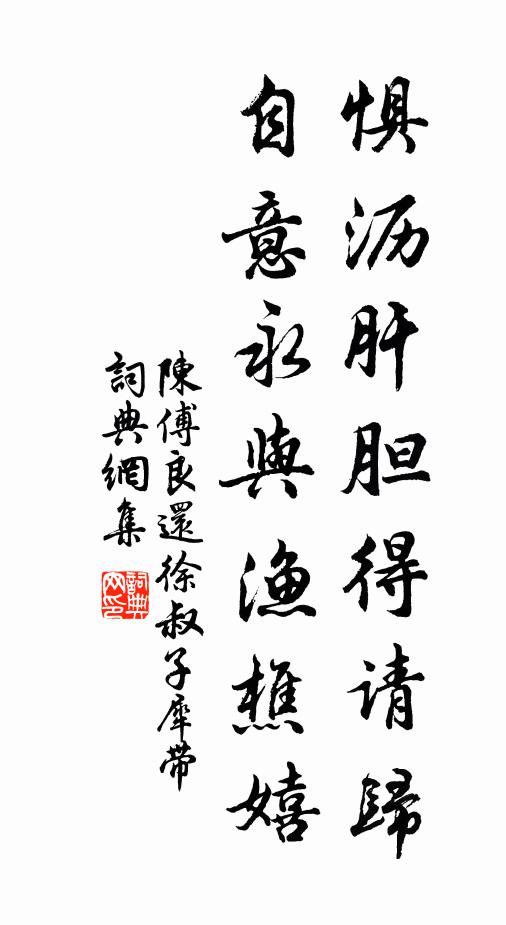 惧沥肝胆得请歸
自意永與漁樵嬉
陳傅良還徐叔子犀带
詞典網集
詞典网印